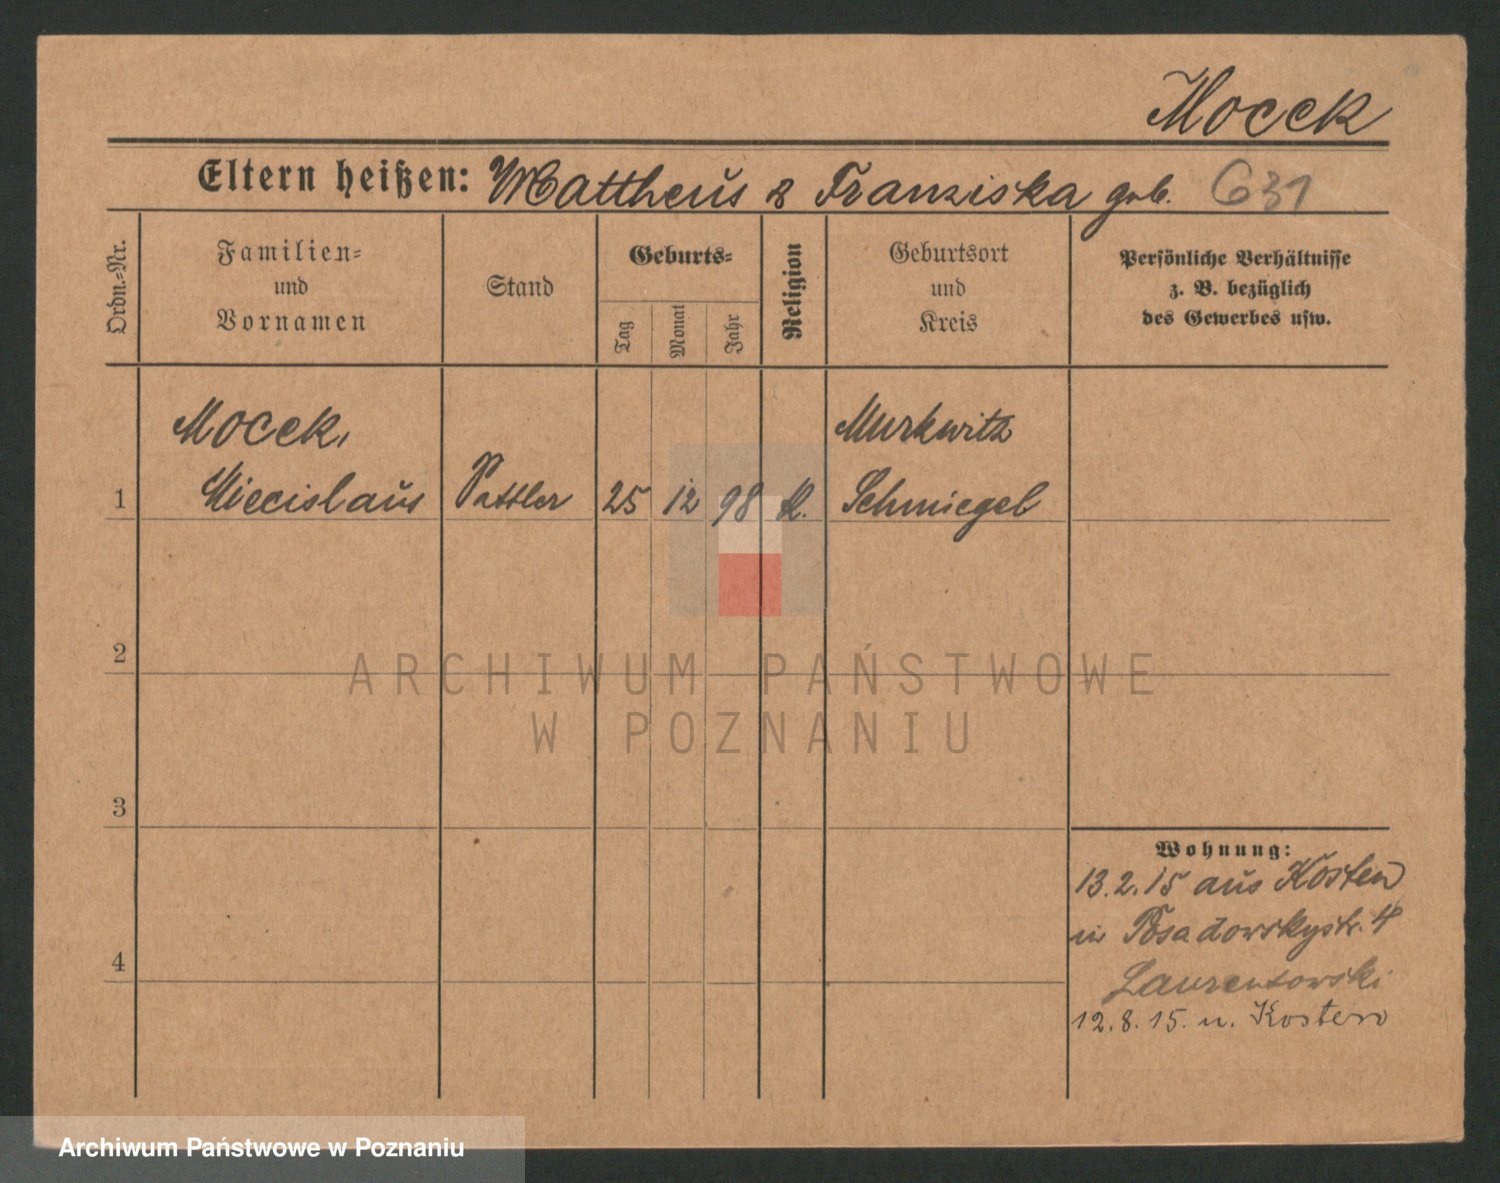 Mocek
Eltern heißen: Mattheus & Franziska geb. G 31
Ordn.=Nr.
Familien=
und
Vornamen
Stand
Geburts=
Tag
Monat
Jahr
Religion
Geburtsort
und
Kreis
Persönliche Verhältnisse
z. B. bezüglich
des Gewerbes usw.
Mocek,
Murkwitz
1 Miecislaus Sattler 25 12 98 k. Schmiegel
2
3
4
Wohnung:
13.2.15 aus Kosten
in Posadowskystr. 4
Laurentowski
12.8.15. n. Kosten
ARCHIWUM PAŃSTWOWE
W POZNANIU
Archiwum Państwowe w Poznaniu